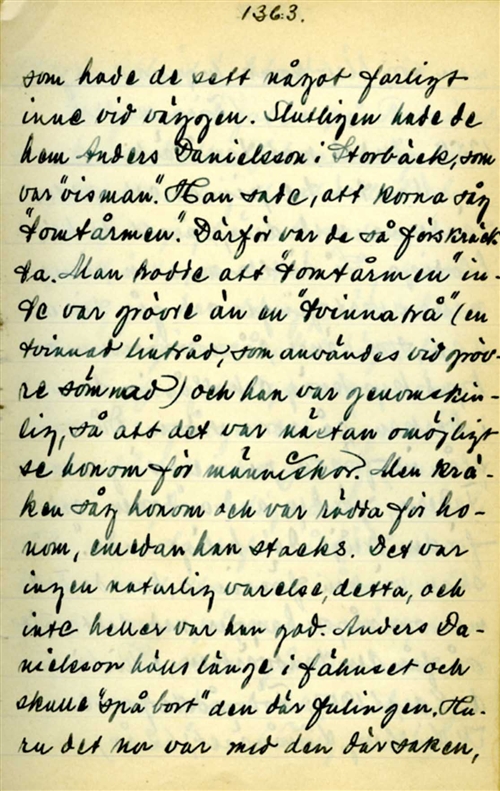 1363.
som hade de sett något farligt
inne vid väggen. Slutligen hade de
hem Anders Danielsson i Storbäck, som
var "vis man". Han sade, att korna såg
"tomtårmen". Därför var de så förskräck
ta. Man trodde att "tomtårmen" in-
te var grövre än en "tvinnatrå" (en
tvinnad lintråd, som användes vid gröv-
re sömnad) och han var genomskin-
lig, så att det var nästan omöjligt
se honom för människor. Men krä-
ken såg honom och var rädda för ho-
nom, emedan han stacks. Det var
ingen naturlig varelse, detta, och
inte heller var han god. Anders Da-
nielsson hölls länge i fähuset och
skulle "spå bort" den där fulingen. Hu-
ru det nor var med den där saken,